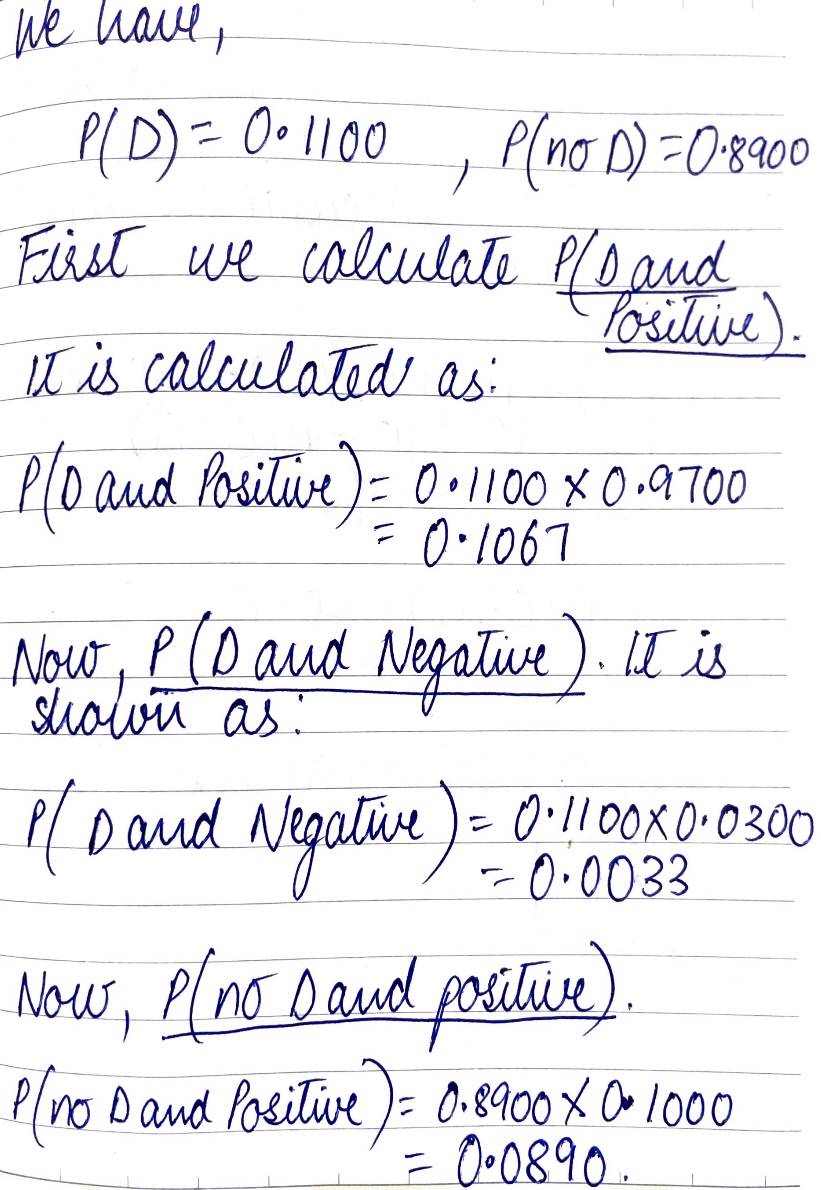 We have,
P(D) = 0.1100 , P(no D) = 0.8900
First we calculate P(D and
Positive).
It is calculated as:
P(D and Positive) = 0.1100 × 0.9700
= 0.1067
Now, P(D and Negative). It is
shown as:
P(D and Negative) = 0.1100×0.0300
= 0.0033
Now, P(no D and positive).
P(no D and Positive) = 0.8900 × 0.1000
= 0.0890.